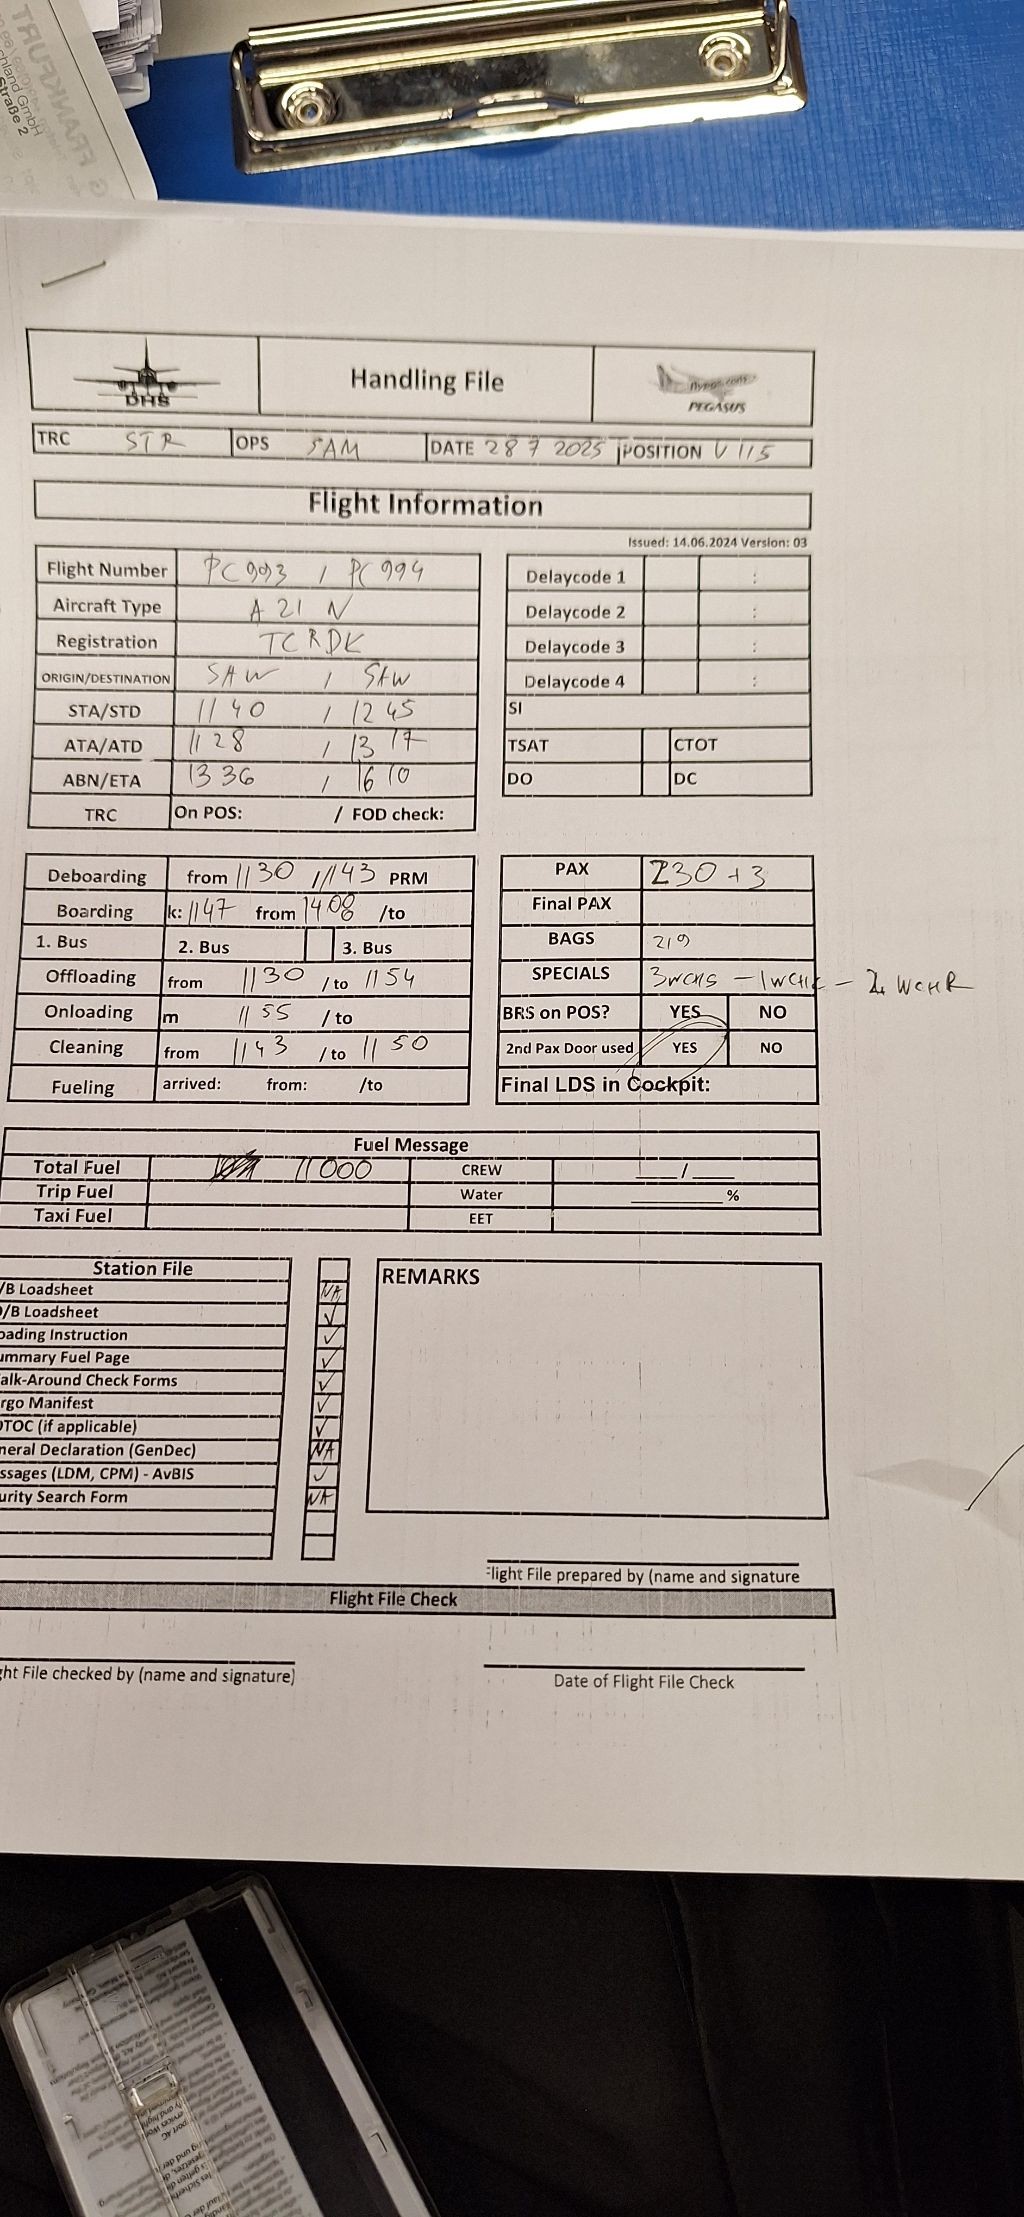 FRANKFURT
chland GmbH
Straße 2
Handling File
DHS
flypgs.com
PEGASUS
TRC STR OPS SAM DATE 28 7 2025 POSITION V 115
Flight Information
Issued: 14.06.2024 Version: 03
Flight Number PC 993 / PC 994
Aircraft Type A 21 N
Registration TC RDK
ORIGIN/DESTINATION SAW / SAW
STA/STD 11 40 / 12 45
ATA/ATD 11 28 / 13 17
ABN/ETA 13 36 / 16 10
TRC On POS: / FOD check:
Delaycode 1 :
Delaycode 2 :
Delaycode 3 :
Delaycode 4 :
SI
TSAT CTOT
DO DC
Deboarding from 11 30 / 1143 PRM
Boarding k: 1147 from 1408 /to
1. Bus 2. Bus 3. Bus
Offloading from 1130 / to 1154
Onloading m 11 55 / to
Cleaning from 1143 / to 11 50
Fueling arrived: from: /to
PAX 230 + 3
Final PAX
BAGS 219
SPECIALS 3 WCHS - 1 WCHC - WCHR
BRS on POS? YES NO
2nd Pax Door used YES NO
Final LDS in Cockpit:
Fuel Message
Total Fuel 11000 CREW ___/___
Trip Fuel Water ______%
Taxi Fuel EET
Station File
/B Loadsheet NA
/B Loadsheet ✓
oading Instruction ✓
ummary Fuel Page ✓
alk-Around Check Forms ✓
rgo Manifest ✓
OTOC (if applicable) ✓
neral Declaration (GenDec) NA
ssages (LDM, CPM) - AvBIS ✓
urity Search Form NA
REMARKS
Flight File prepared by (name and signature
Flight File Check
ght File checked by (name and signature)
Date of Flight File Check